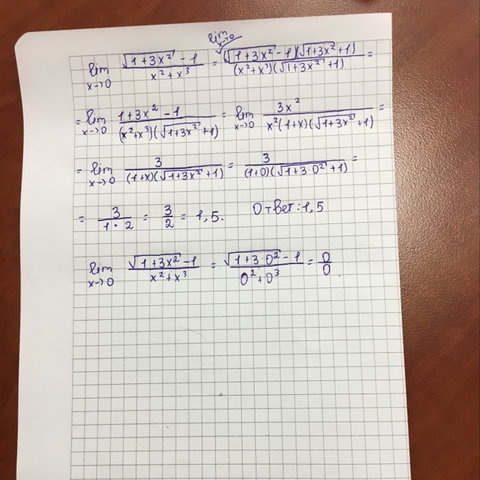 lim x→0 (√(1+3x²) - 1)/(x²+x³) = lim x→0 ((√(1+3x²) - 1)(√(1+3x²) + 1))/((x²+x³)(√(1+3x²) + 1)) =
= lim x→0 (1+3x² - 1)/((x²+x³)(√(1+3x²) + 1)) = lim x→0 3x²/(x²(1+x)(√(1+3x²) + 1)) =
= lim x→0 3/((1+x)(√(1+3x²) + 1)) = 3/((1+0)(√(1+3·0²) + 1)) =
= 3/(1·2) = 3/2 = 1,5. Ответ: 1,5
lim x→0 (√(1+3x²) - 1)/(x²+x³) = (√(1+3·0²) - 1)/(0²+0³) = 0/0.